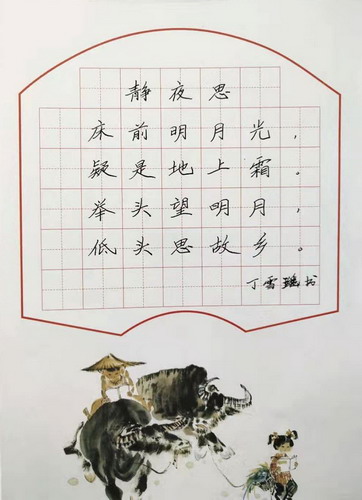 静夜思
床前明月光，
疑是地上霜。
举头望明月，
低头思故乡。
丁雪瑶书